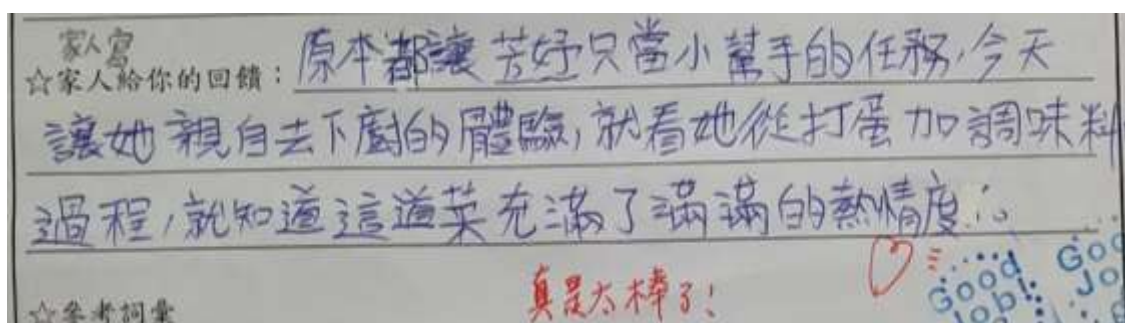 家人寫
☆家人給你的回饋：原本都讓芳妤只當小幫手的任務,今天
讓她親自去下廚的體驗,就看她從打蛋加調味料
過程,就知道這道菜充滿了滿滿的熱情度!。
真是太棒了!
Good Job!
Good Jo
☆參考詞彙